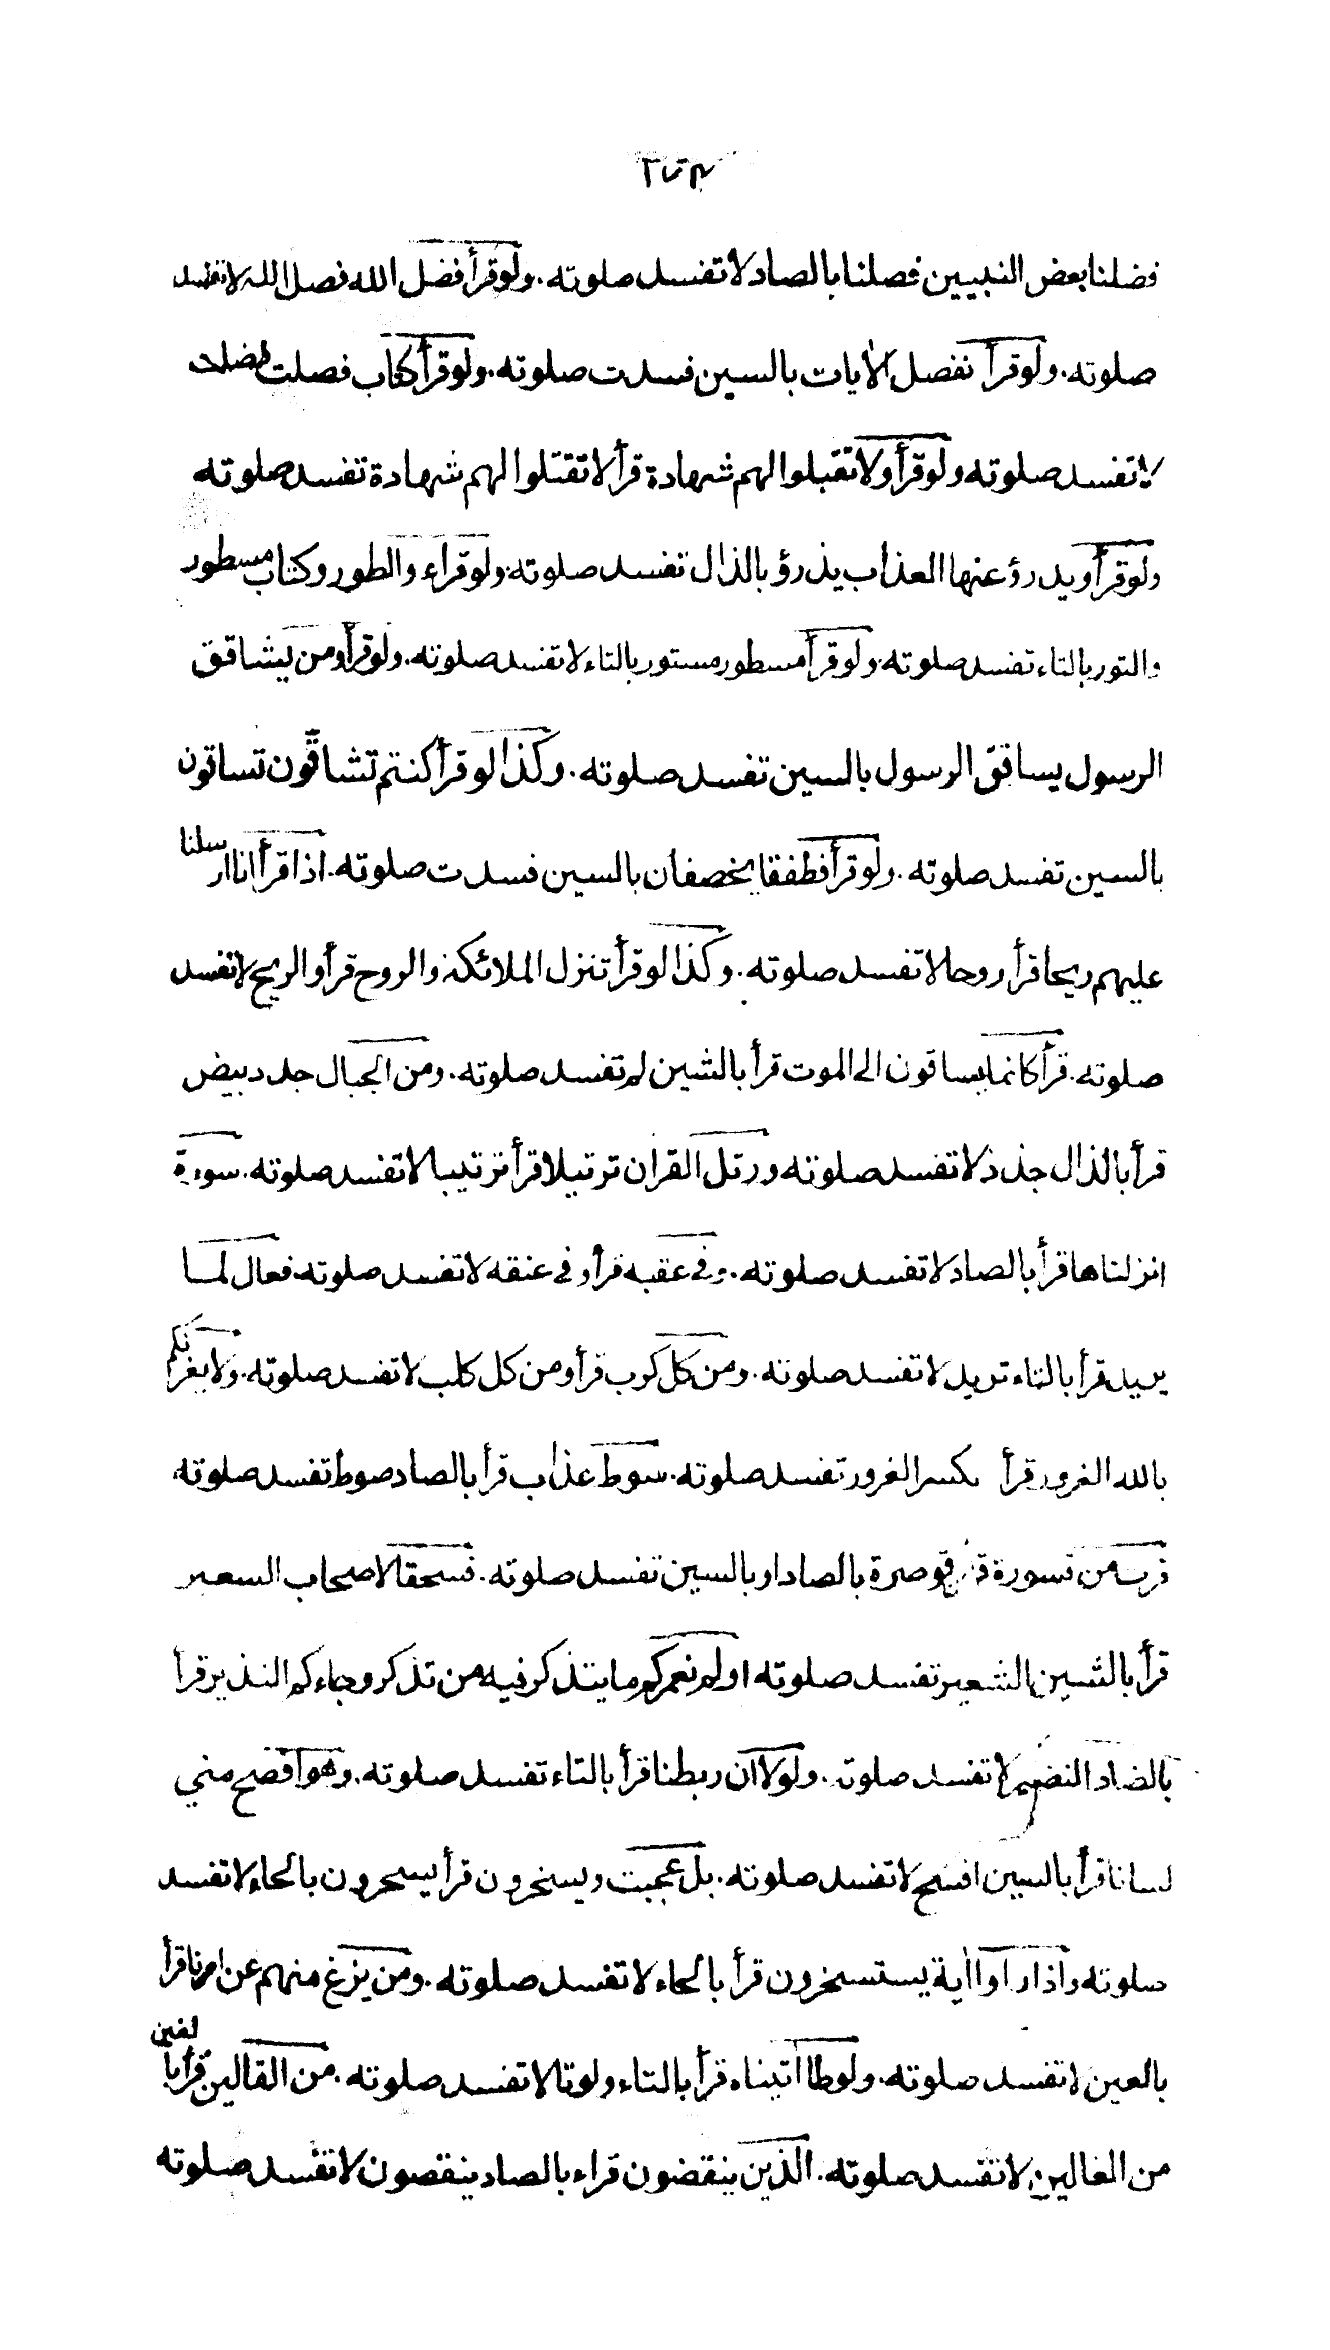 فضلنا بعض النبيين فصلنا بالصاد لا تفسد صلوته. ولو قرأ فضل الله فصل الله لا تفسد
صلوته. ولو قرأ نفصل الأيات بالسين فسدت صلوته. ولو قرأ كتاب فصلت فضلت
لا تفسد صلوته ولو قرأ ولا تقبلوا لهم شهادة قرأ لا تقتلوا لهم شهادة تفسد صلوته
ولو قرأ ويدرؤ عنها العذاب يذرؤ بالذال تفسد صلوته. ولو قراء والطور وكتاب مسطور
والتور بالتاء تفسد صلوته. ولو قرأ مسطور مستور بالتاء لا تفسد صلوته. ولو قرأ ومن يشاقق
الرسول يساقق الرسول بالسين تفسد صلوته. وكذا لو قرأ كنتم تشاقّون تساقون
بالسين تفسد صلوته. ولو قرأ فطفقا يخصفان بالسين فسدت صلوته. اذا قرأ انا ارسلنا
عليهم ريحا قرأ روحا لا تفسد صلوته. وكذا لو قرأ تنزل الملائكة والروح قرأ والريح لا تفسد
صلوته. قرأ كانما يساقون الى الموت قرأ بالشين لم تفسد صلوته. ومن الجبال جدد بيض
قرأ بالذال جذذ لا تفسد صلوته ورتل القران ترتيلا قرأ ترتيبا لا تفسد صلوته. سورة
انزلناها قرأ بالصاد لا تفسد صلوته. وفى عقبه قرأ وفى عنقه لا تفسد صلوته. فعال لما
يريد قرأ بالتاء تريد لا تفسد صلوته. ومن كل كرب قرأ ومن كل كلب لا تفسد صلوته. ولا يغرنكم
بالله الغرور قرأ بكسر الغرور تفسد صلوته. سوط عذاب قرأ بالصاد صوط تفسد صلوته
فرت من قسورة قوصرة بالصاد او بالسين تفسد صلوته. فسحقا لاصحاب السعير
قرأ بالشين الشعير تفسد صلوته اولم نعمركم ما يتذكر فيه من تذكر وجاءكم النذير قرأ
بالضاد النضير لا تفسد صلوته. ولولا ان ربطنا قرأ بالتاء تفسد صلوته. وهو افصح مني
لسانا قرأ بالسين افسح لا تفسد صلوته. بل عجبت ويسخرون قرأ يسحرون بالحاء لا تفسد
صلوته واذا راوا اية يستسخرون قرأ بالحاء لا تفسد صلوته. ومن يزغ منهم عن امرنا قرأ
بالعين لا تفسد صلوته. ولوطا اتيناه قرأ بالتاء ولوتا لا تفسد صلوته. من القالين قرأ بالغين
من الغالين لا تفسد صلوته. الذين ينقضون قراء بالصاد ينقصون لا تفسد صلوته